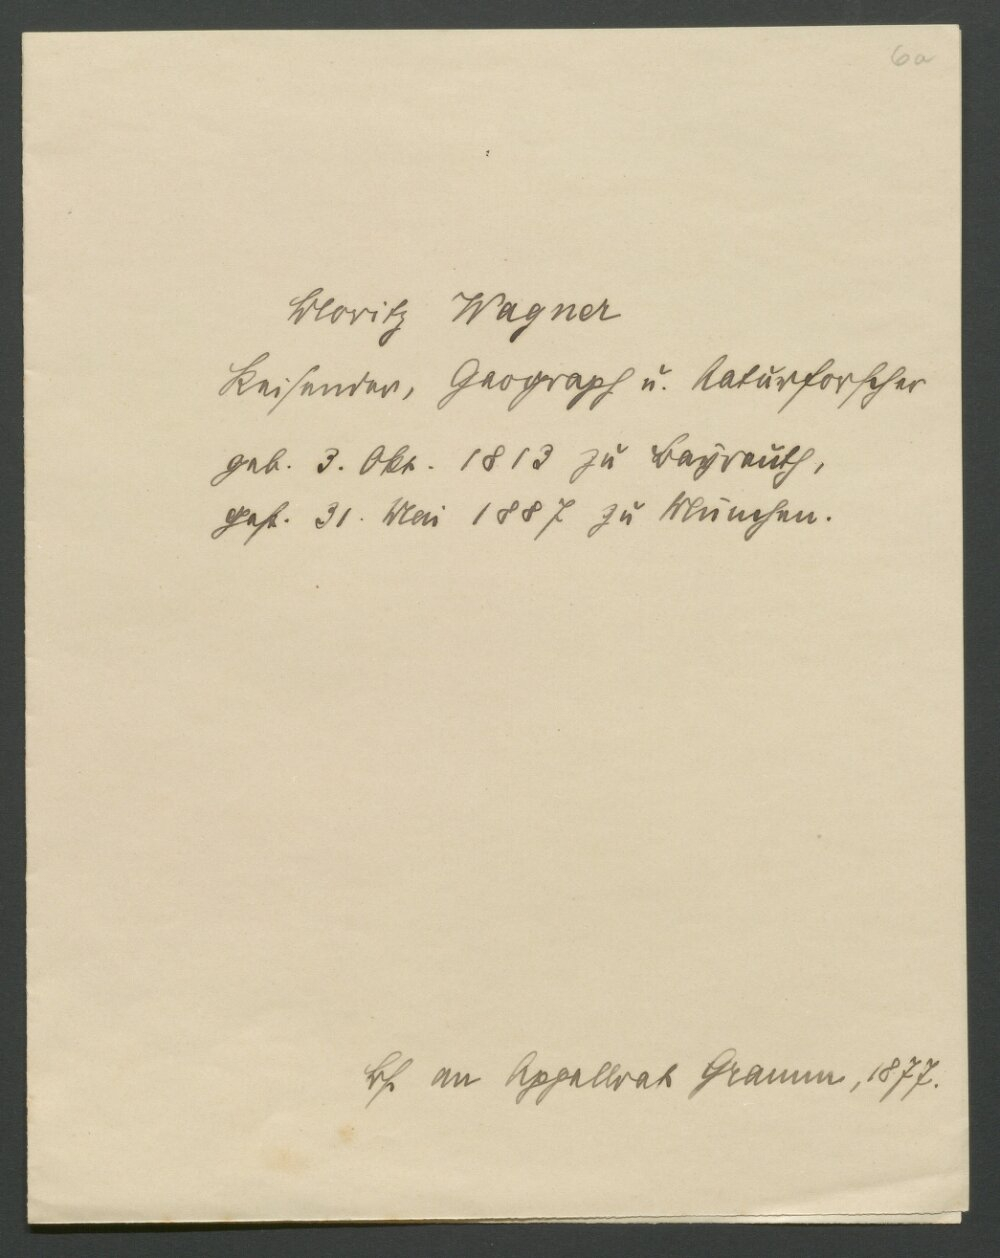 6a
Moritz Wagner
Reisender, Geograph u. Naturforscher
geb. 3. Okt. 1813 zu Bayreuth,
gest. 31. Mai 1887 zu München.
Bf an Appellrat Gramm, 1877.